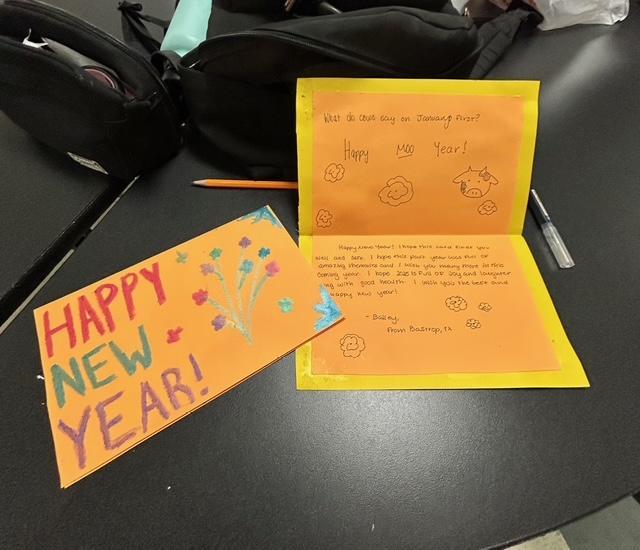 HAPPY
NEW
YEAR!
What do cows say on January first?
Happy Moo Year!
Happy New Year! I hope this card finds you
well and safe. I hope this past year was full of
amazing memories and I wish you many more in this
coming year. I hope 2025 is full of joy and laughter
along with good health. I wish you the best and
happy new year!
- Bailey,
From Bastrop, TX